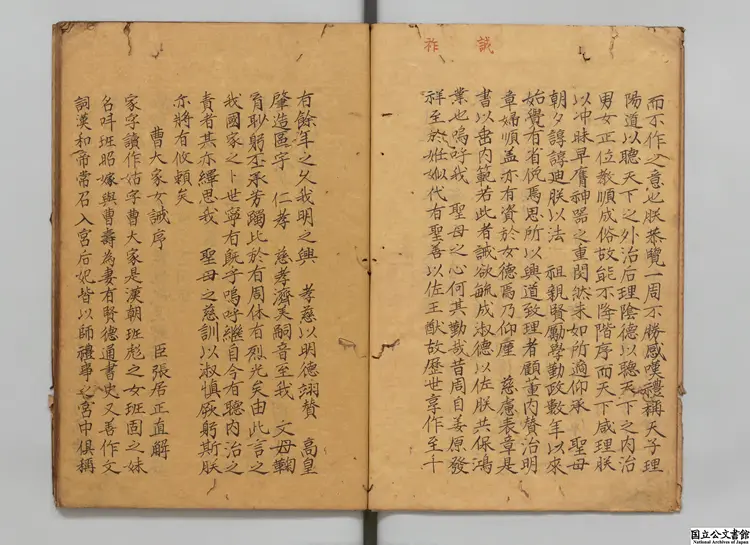 誡 祚
而不作之意也朕恭覽一周不勝感嘆禮稱天子理
陽道以聽天下之外治后理陰德以聽天下之内治
男女正位教順成俗故能不降階序而天下咸理朕
以冲昧早膺神器之重罔然未知所適仰承 聖母
朝夕諄諄迪朕以法 祖親賢勵學勤政數年以來
始覺有省侻焉思所以興道致理者顧董内賛治明
章婦順盖亦有資於女德焉乃仰塵 慈慮表章是
書以垂内範若此者誠欲毓成淑德以佐朕共保鴻
業也嗚呼我 聖母之心何其勤哉昔周自姜原發
祥至於妊姒代有聖善以佐王猷故歷世享作至十
有餘年之久我明之興 孝慈以明德翊賛 高皇
肇造區宇 仁孝 慈孝濟美嗣音至我 文母鞠
育耿躬丕承芳躅此於有周休有烈光矣由此言之
我國家之卜世寧有旣乎嗚呼繼自今有聰内治之
責者其亦繹思我 聖母之慈訓以淑慎厥躬斯朕
亦將有攸頼矣
曹大家女誡序
臣張居正直解
家字讀作姑字曹大家是漢朝班彪之女班固之妹
名呌班昭嫁與曹壽為妻有賢德通書史又善作文
詞漢和帝常召入宮后妃皆以師禮亊之宮中俱稱
国立公文書館
National Archives of Japan